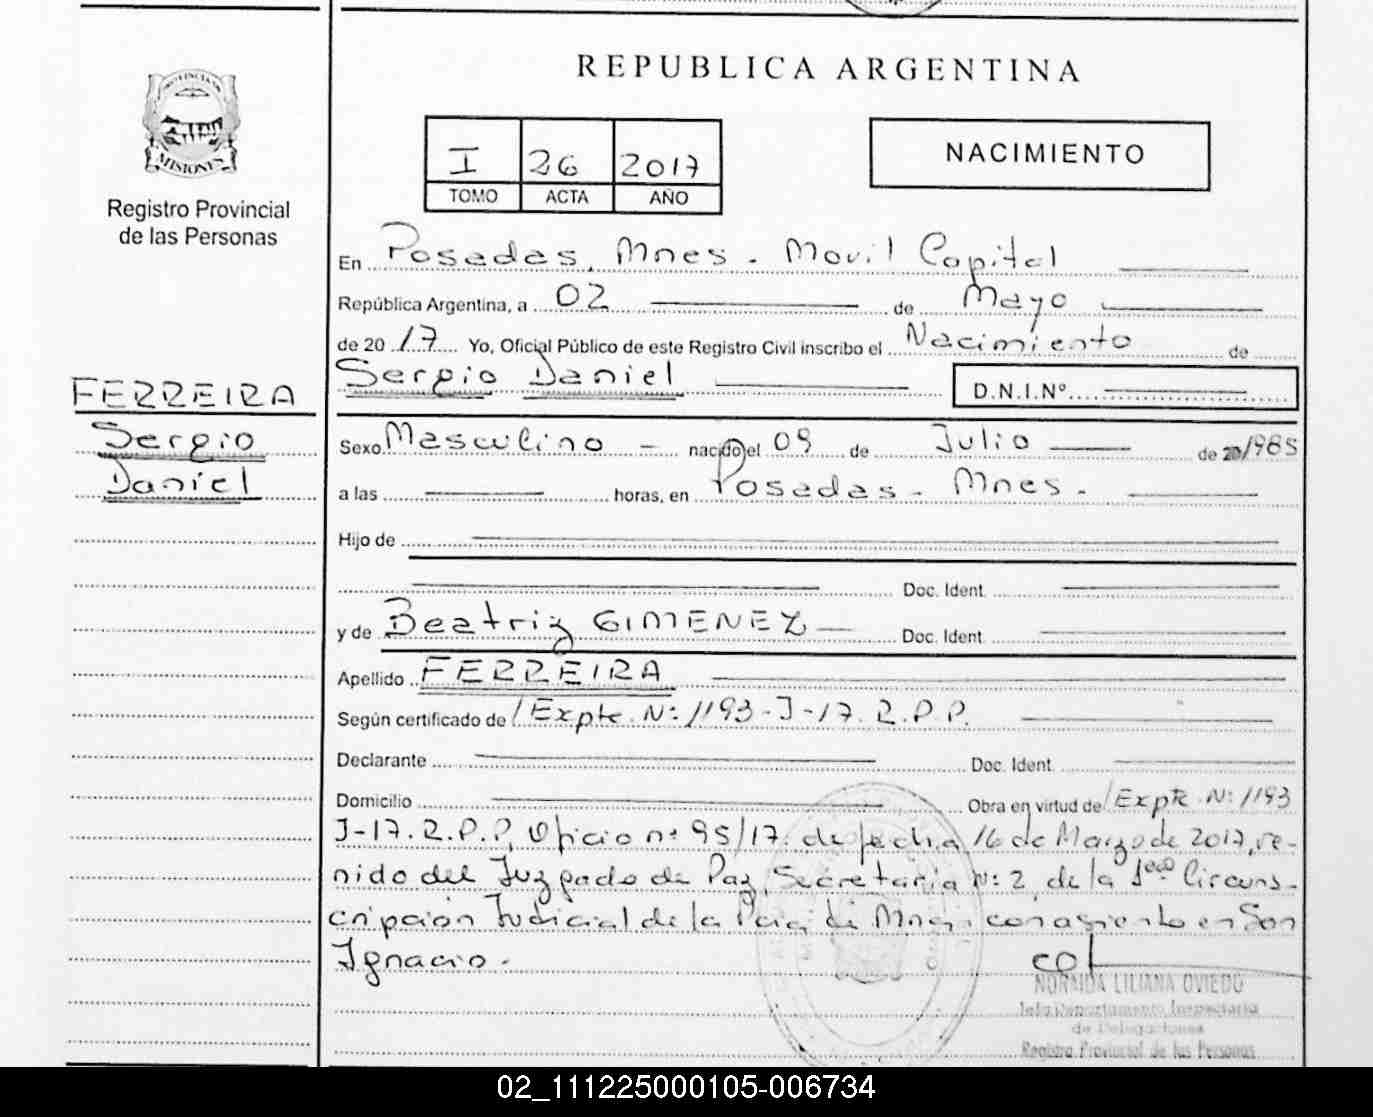 REPUBLICA ARGENTINA
PROVINCIA DE
MISIONES
Registro Provincial
de las Personas
I 26 2017
TOMO ACTA AÑO
NACIMIENTO
En Posadas, Mnes. Movil Capital
República Argentina, a 02 de Mayo
de 20 17 Yo, Oficial Público de este Registro Civil inscribo el Nacimiento de
Sergio Daniel D.N.I.Nº
FERREIRA
Sergio
Daniel
Sexo Masculino nacido el 09 de Julio de 20/985
a las horas, en Posadas - Mnes.
Hijo de
Doc. Ident.
y de Beatriz GIMENEZ Doc. Ident.
Apellido FERREIRA
Según certificado de /Expte. Nº: 1193-J-17. R.P.P.
Declarante Doc. Ident.
Domicilio Obra en virtud de /Expte. Nº: 1193
J-17. R.P.P, Oficio nº 95/17. de fecha 16 de Marzo de 2017, ve-
nido del Juzgado de Paz, Secretaria Nº: 2, de la 1era Circuns-
cripción Judicial de la Pcia, de Mnes. con asiento en San
Ignacio.
NORMIDA LILIANA OVIEDO
Jefa Departamento Inspectoría
de Delegaciones
Registro Provincial de las Personas
02_111225000105-006734